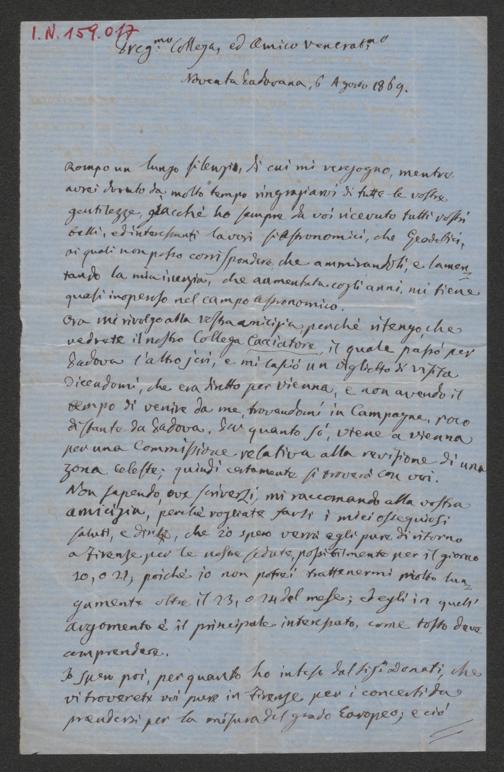 I.N. 159.017
Preg.mo Collega, ed Amico venerat.mo
Noventa Padovana, 6 Agosto 1869.
Rompo un lungo silenzio, di cui mi vergogno, mentre
avrei dovuto da molto tempo ringraziarvi di tutte le vostre
gentilezze, giacchè ho sempre da voi ricevuto tutti i vostri
belli, ed interessanti lavori sì Astronomici, che Geodetici,
ai quali non posso corrispondere che ammirandoli, e lamen-
tando la mia inerzia, che aumentata cogli anni, mi tiene
quasi inoperoso nel campo astronomico.
Ora mi rivolgo alla vostra amicizia perchè ritengo, che
vedrete il nostro Collega Cacciatore, il quale passò per
Padova l'altro jeri, e mi lasciò un viglietto di visita
dicendomi, che era diretto per Vienna, e non avendo il
tempo di venire da me, trovandomi in Campagna, poco
distante da Padova. Per quanto sò, viene a Vienna
per una Commissione relativa alla revisione di una
zona celeste; quindi certamente si troverà con voi.
Non sapendo, ove scriverli, mi raccomando alla vostra
amicizia, perchè vogliate farli i miei ossequiosi
saluti, e dirli, che io spero verrà egli pure di ritorno
a Firenze per le nostre sedute, possibilmente per il giorno
20, o 21, poichè io non potrei trattenermi molto lun-
gamente oltre il 23, o 24 del mese; ed egli in quest'
argomento è il principale interessato, come tosto deve
comprendere.
Io spero poi, per quanto ho inteso dal Sig. Donati, che
vi troverete voi pure in Firenze per i concerti da
prendersi per la misura del grado Europeo; e ciò